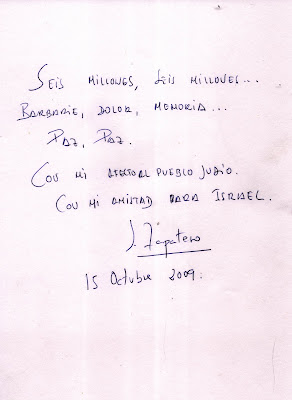 Seis millones, seis millones...
Barbarie, dolor, memoria...
Paz, Paz.
Con mi afecto al pueblo judío.
Con mi amistad para Israel.
J. Zapatero
15 Octubre 2009.